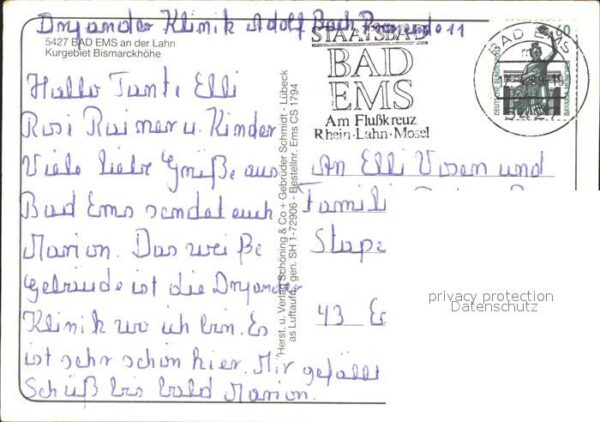 Dryander Klinik Adolf Bach Promenade 11
5427 BAD EMS an der Lahn
Kurgebiet Bismarckhöhe
Hallo Tante Elli
Rosi Rainer u. Kinder
Viele liebe Grüße aus
Bad Ems sendet euch
Marion. Das weiße
Gebäude ist die Dryander
Klinik wo ich bin. Es
ist sehr schön hier. Mir gefällt
Schüß bis bald Marion.
Herst. u. Verlag Schöning & Co + Gebrüder Schmidt · Lübeck
as Luftaufn. gen. SH 1-72906 - Bestellnr. Ems CS 1794
STAATSBAD
BAD
EMS
Am Flußkreuz
Rhein·Lahn·Mosel
BAD EMS
60
An Elli Vosen und
Famili
Stape
43
privacy protection
Datenschutz